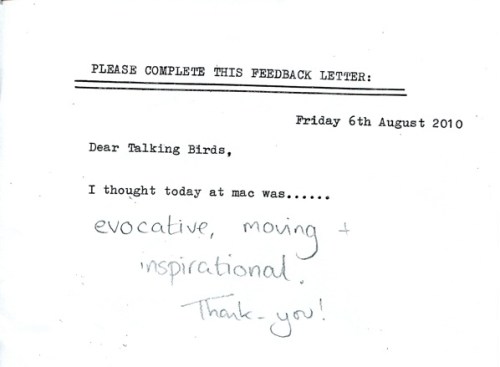 PLEASE COMPLETE THIS FEEDBACK LETTER:
Friday 6th August 2010
Dear Talking Birds,
I thought today at mac was......
evocative, moving +
inspirational.
Thank-you!